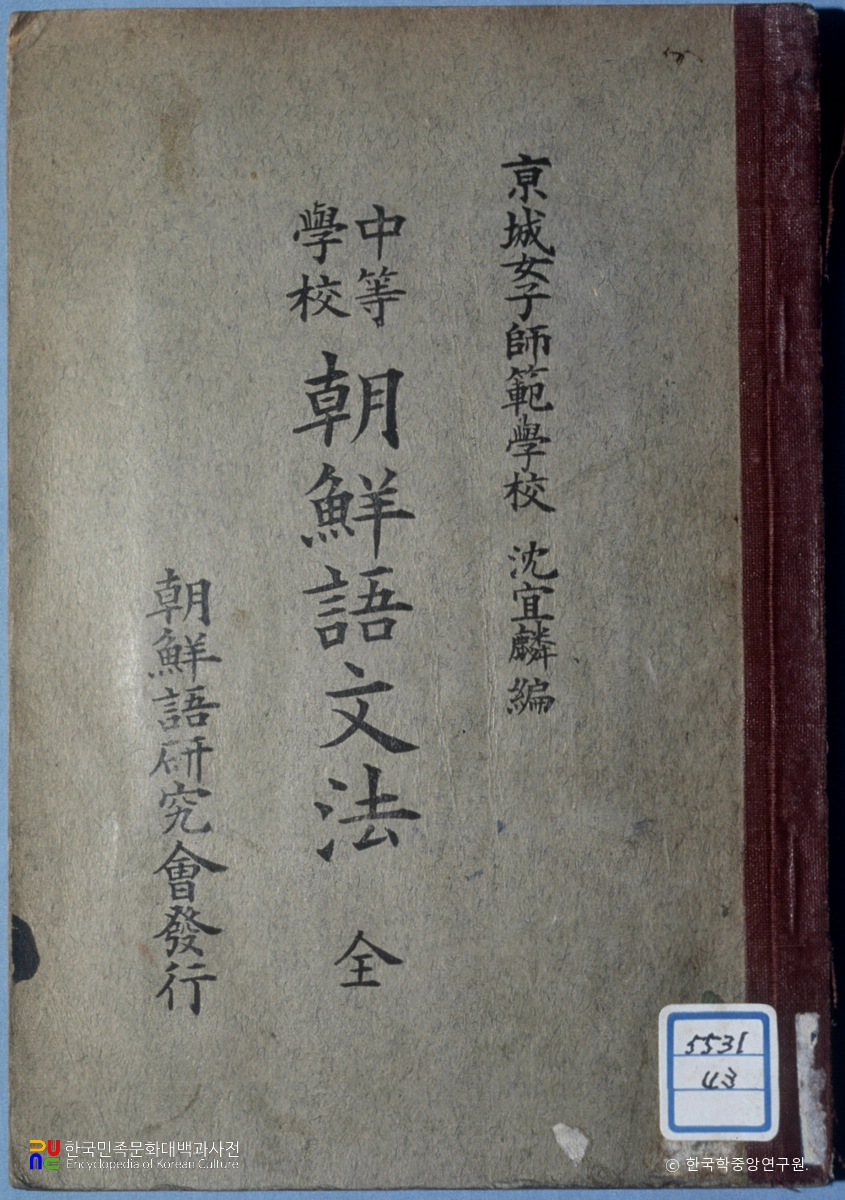 京城女子師範學校 沈宜麟編
中等學校 朝鮮語文法 全
朝鮮語研究會發行
5531
43
한국민족문화대백과사전
Encyclopedia of Korean Culture
© 한국학중앙연구원.